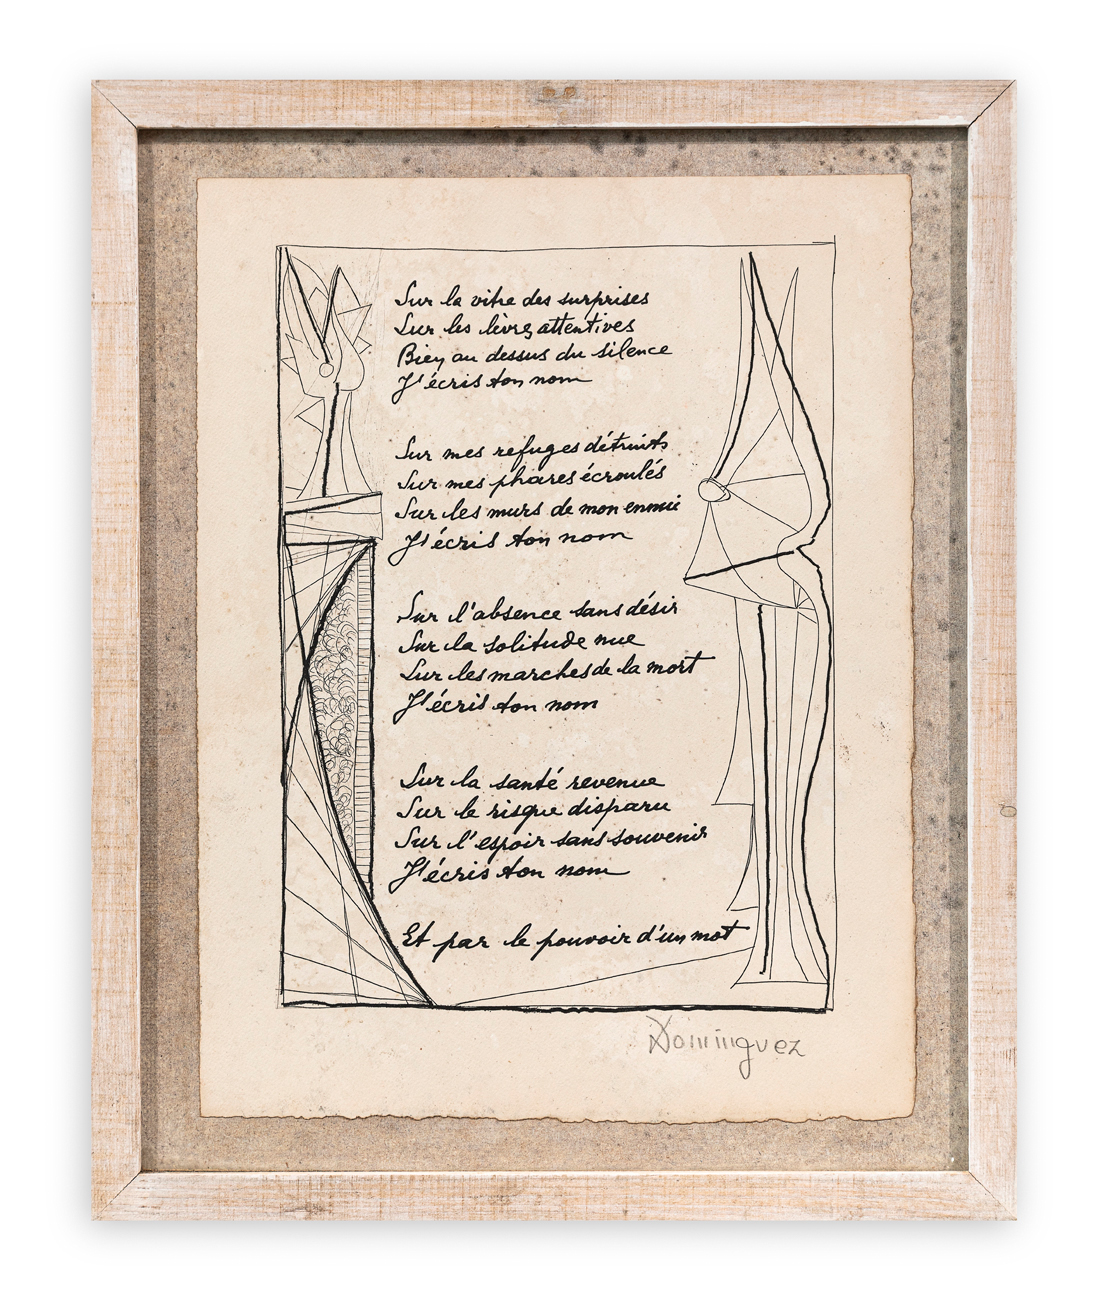 Sur la vitre des surprises
Sur les lèvres attentives
Bien au dessus du silence
J'écris ton nom
Sur mes refuges détruits
Sur mes phares écroulés
Sur les murs de mon ennui
J'écris ton nom
Sur l'absence sans désir
Sur la solitude nue
Sur les marches de la mort
J'écris ton nom
Sur la santé revenue
Sur le risque disparu
Sur l'espoir sans souvenir
J'écris ton nom
Et par le pouvoir d'un mot
Dominguez